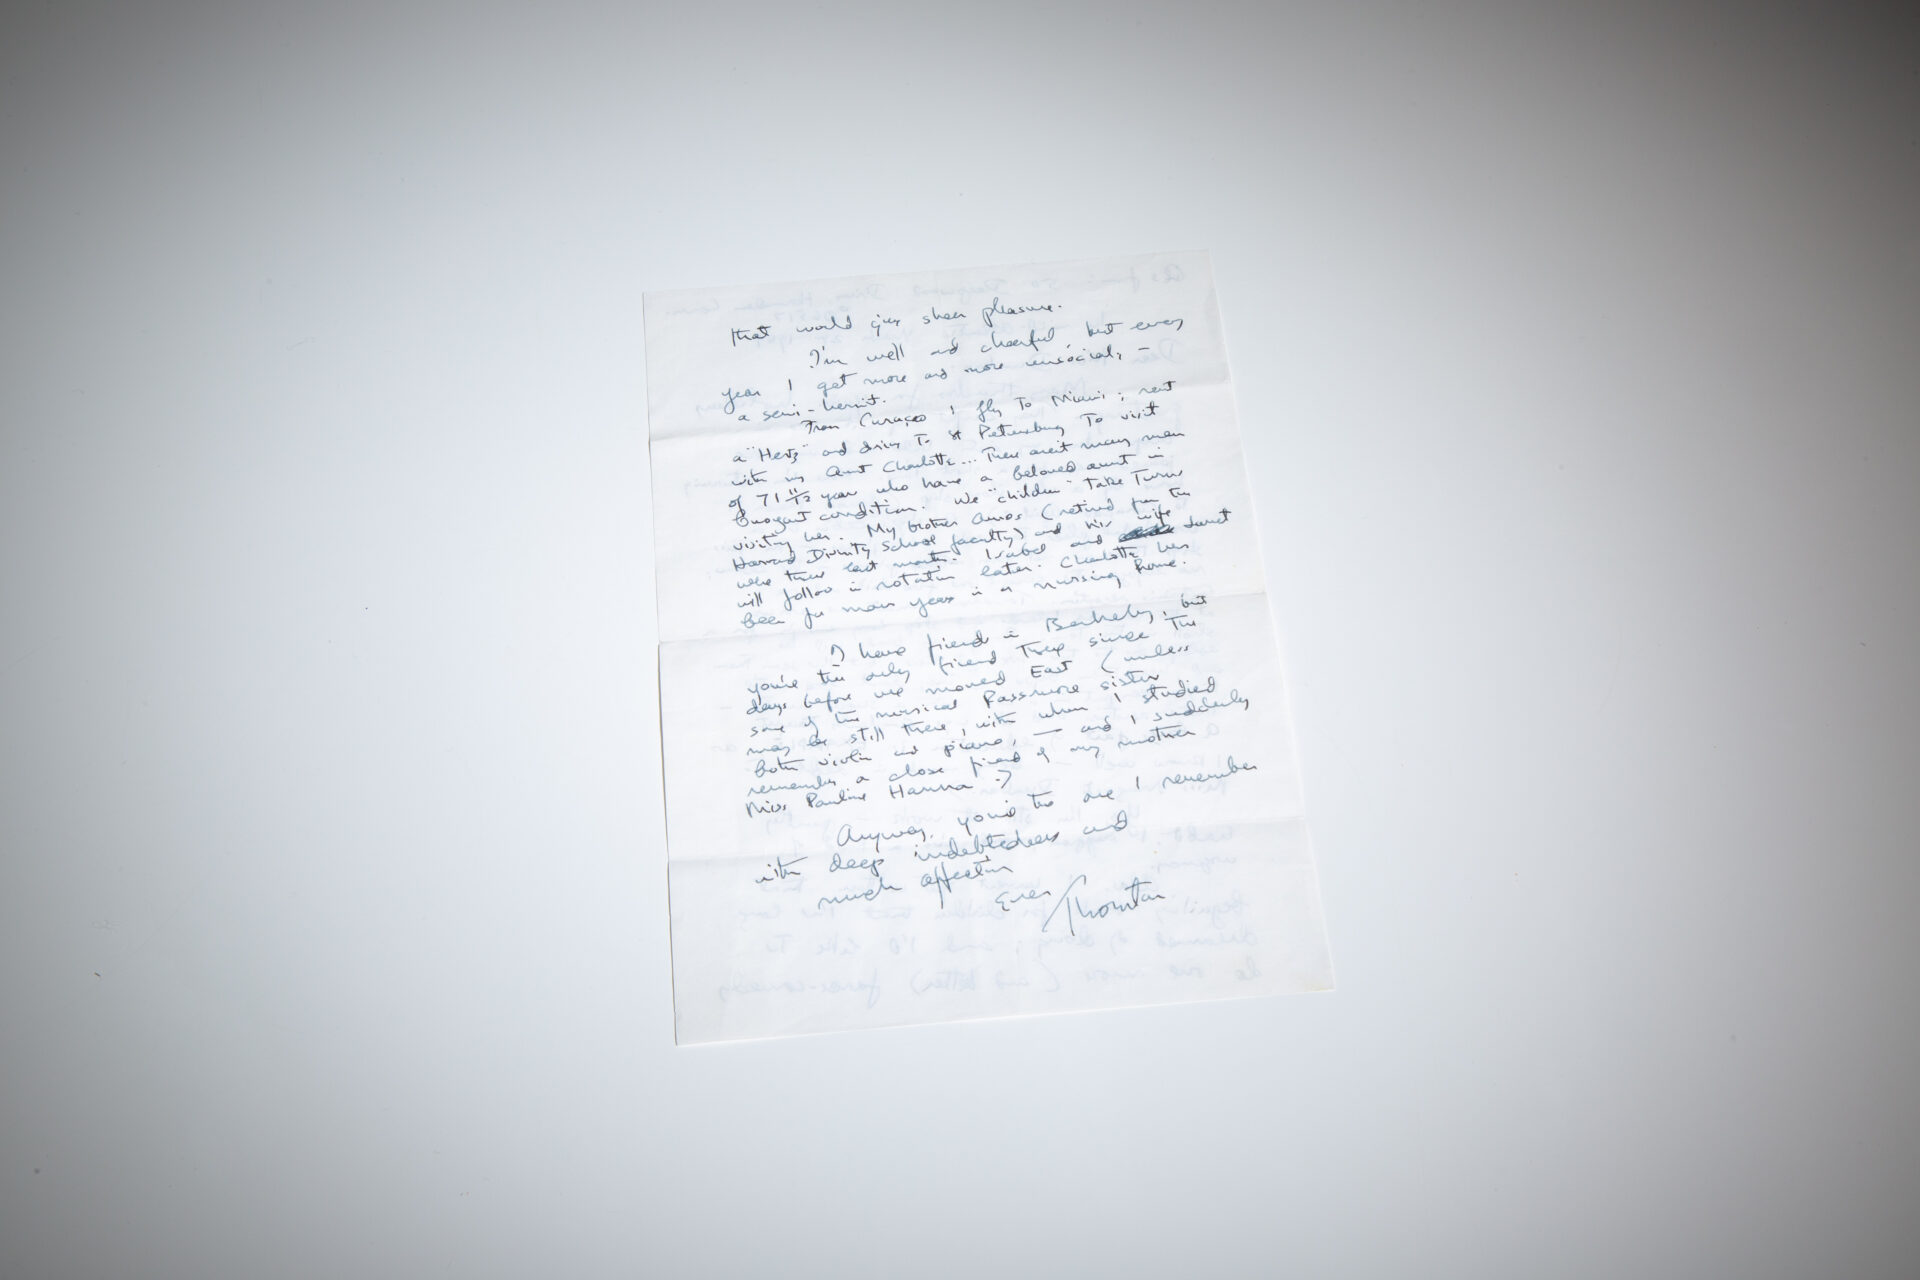 that would give sheer pleasure.
I'm well and cheerful, but every
year I get more and more unsocial; —
a semi-hermit.
From Curaçao I fly to Miami; rent
a "Hertz" and drive to St Petersburg to visit
with my Aunt Charlotte... There aren't many men
of 71 11/12 year who have a beloved aunt in
buoyant condition. We "children" take turns
visiting her. My brother Amos (retired from the
Harvard Divinity School faculty) and his wife
were there last month. Isabel and Janet
will follow in rotation later. Charlotte has
been for many years in a nursing home.
I have friends in Berkeley, but
you're the only friend there since the
days before we moved East (unless
some of the musical Passmore sisters
may be still there, with whom I studied
both violin and piano, — and I suddenly
remember a close friend of my mother
Miss Pauline Hanna ?)
Anyway, you're the one I remember
with deep indebtedness and
much affection
Ever
Thornton